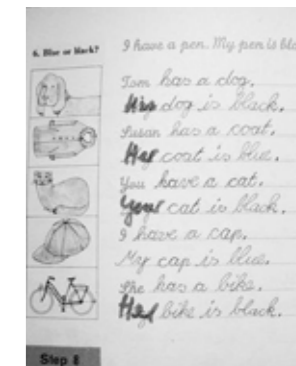 6. Blue or black?
I have a pen. My pen is bla
Tom has a dog.
His dog is black.
Susan has a coat.
Her coat is blue.
You have a cat.
Your cat is black.
I have a cap.
My cap is blue.
She has a bike.
Her bike is black.
Step 8